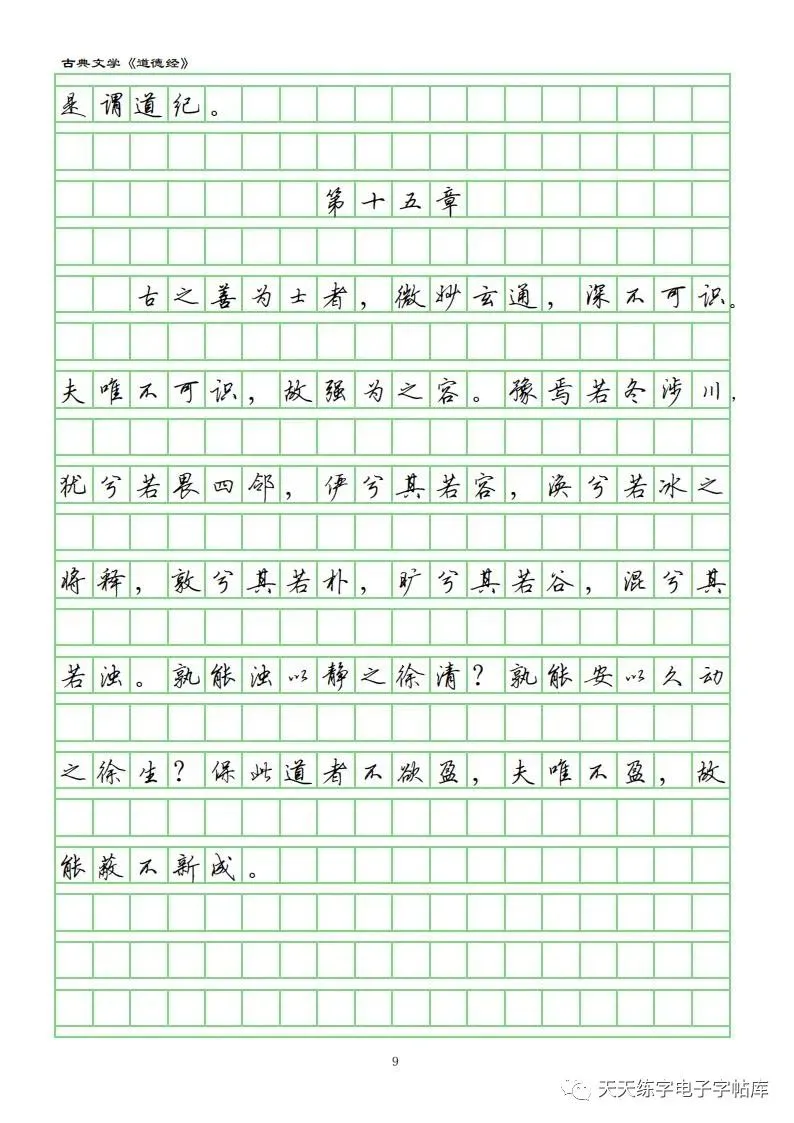 古典文学《道德经》
是谓道纪。
第十五章
古之善为士者，微妙玄通，深不可识。
夫唯不可识，故强为之容。豫焉若冬涉川，
犹兮若畏四邻，俨兮其若容，涣兮若冰之
将释，敦兮其若朴，旷兮其若谷，混兮其
若浊。孰能浊以静之徐清？孰能安以久动
之徐生？保此道者不欲盈，夫唯不盈，故
能蔽不新成。
9
天天练字电子字帖库